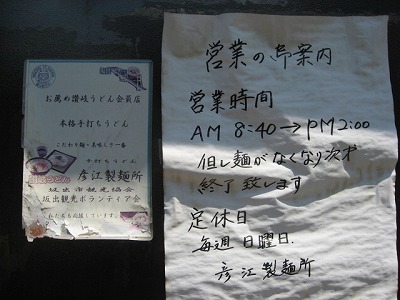 お薦め讃岐うどん会員店
本格手打ちうどん
こだわり麺・美味しさ一番
手打ちうどん
彦江製麺所
坂出市観光協会
坂出観光ボランティア会
私たちも応援しています。
営業の御案内
営業時間
AM 8:40→PM2:00
但し麺がなくなり次才
終了致します
定休日
毎週 日曜日.
彦江製麺所